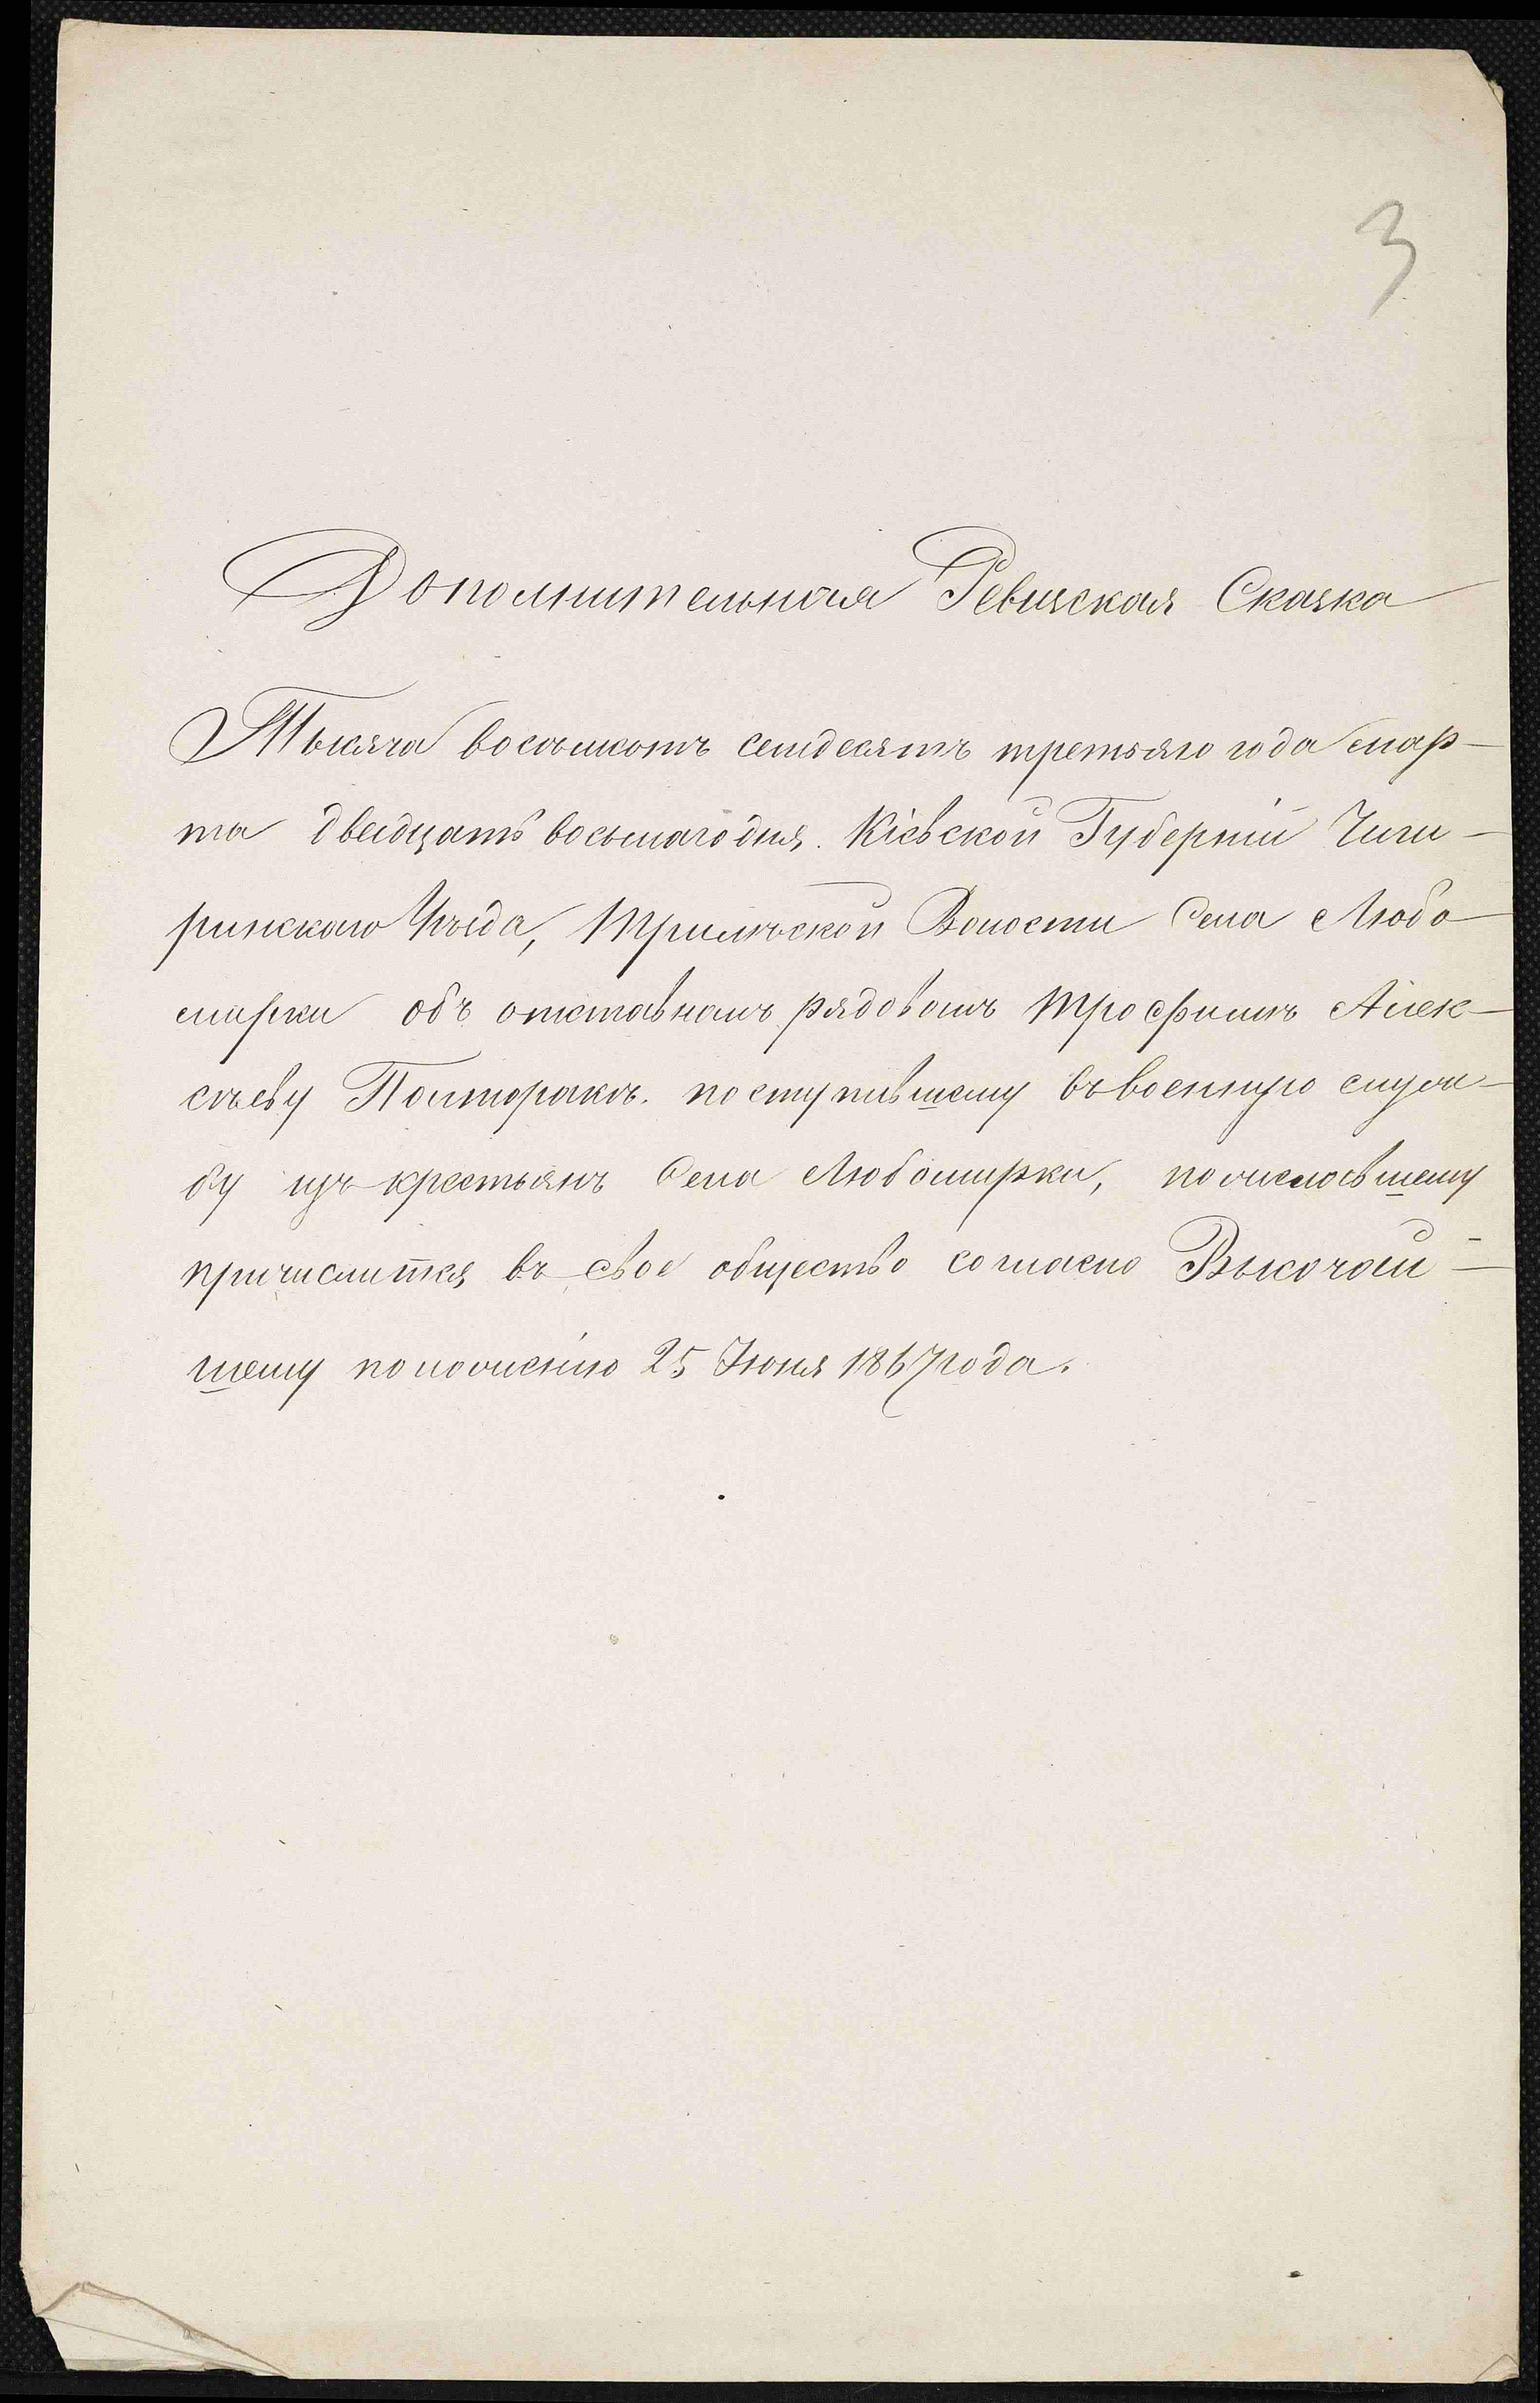 3
Дополнительная Ревизская Сказка
Тысяча восѣмсотъ семдесятъ третьяго года мар-
та двадцать восьмаго дня. Кіевской Губерніи Чиги-
ринскаго Уѣзда, Трилѣской Волости Села Любо-
мирки объ отставномъ рядовомъ Трофимѣ Алек-
сѣеву Полторакъ. поступившему въ военную служ-
бу изъ крестьянъ Села Любомирки, пожелавшему
причислится въ свое общество согласно Высочай-
шему положенію 25 Іюня 1867 года.